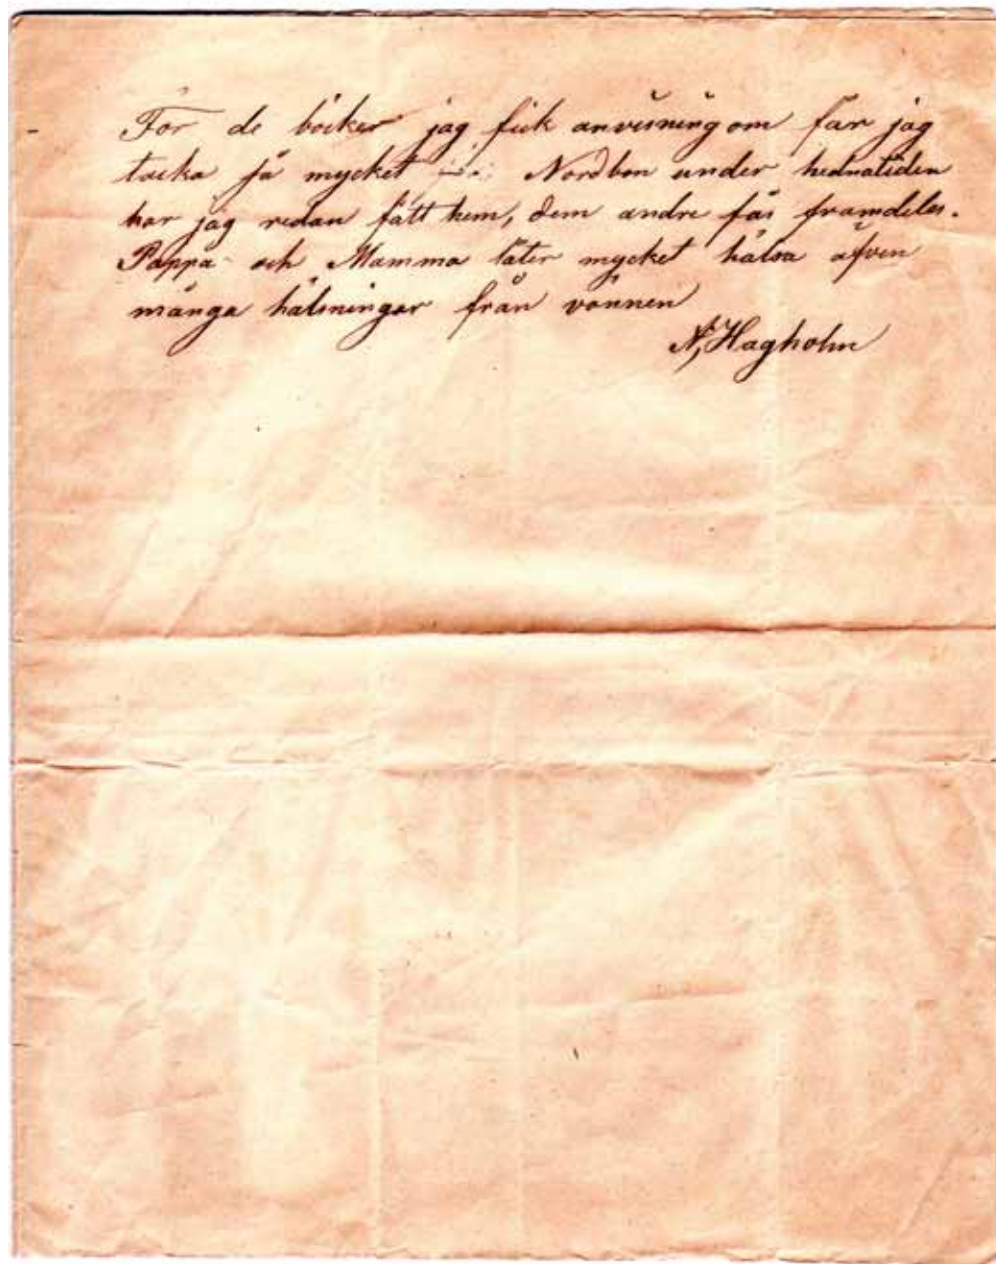 För de böcker jag fick anvisning om får jag
tacka så mycket Nordbon under hednatiden
har jag redan fått hem, dem andre fås framdeles.
Pappa och Mamma låter mycket hälsa äfven
många hälsningar från vännen
N, Hagholm